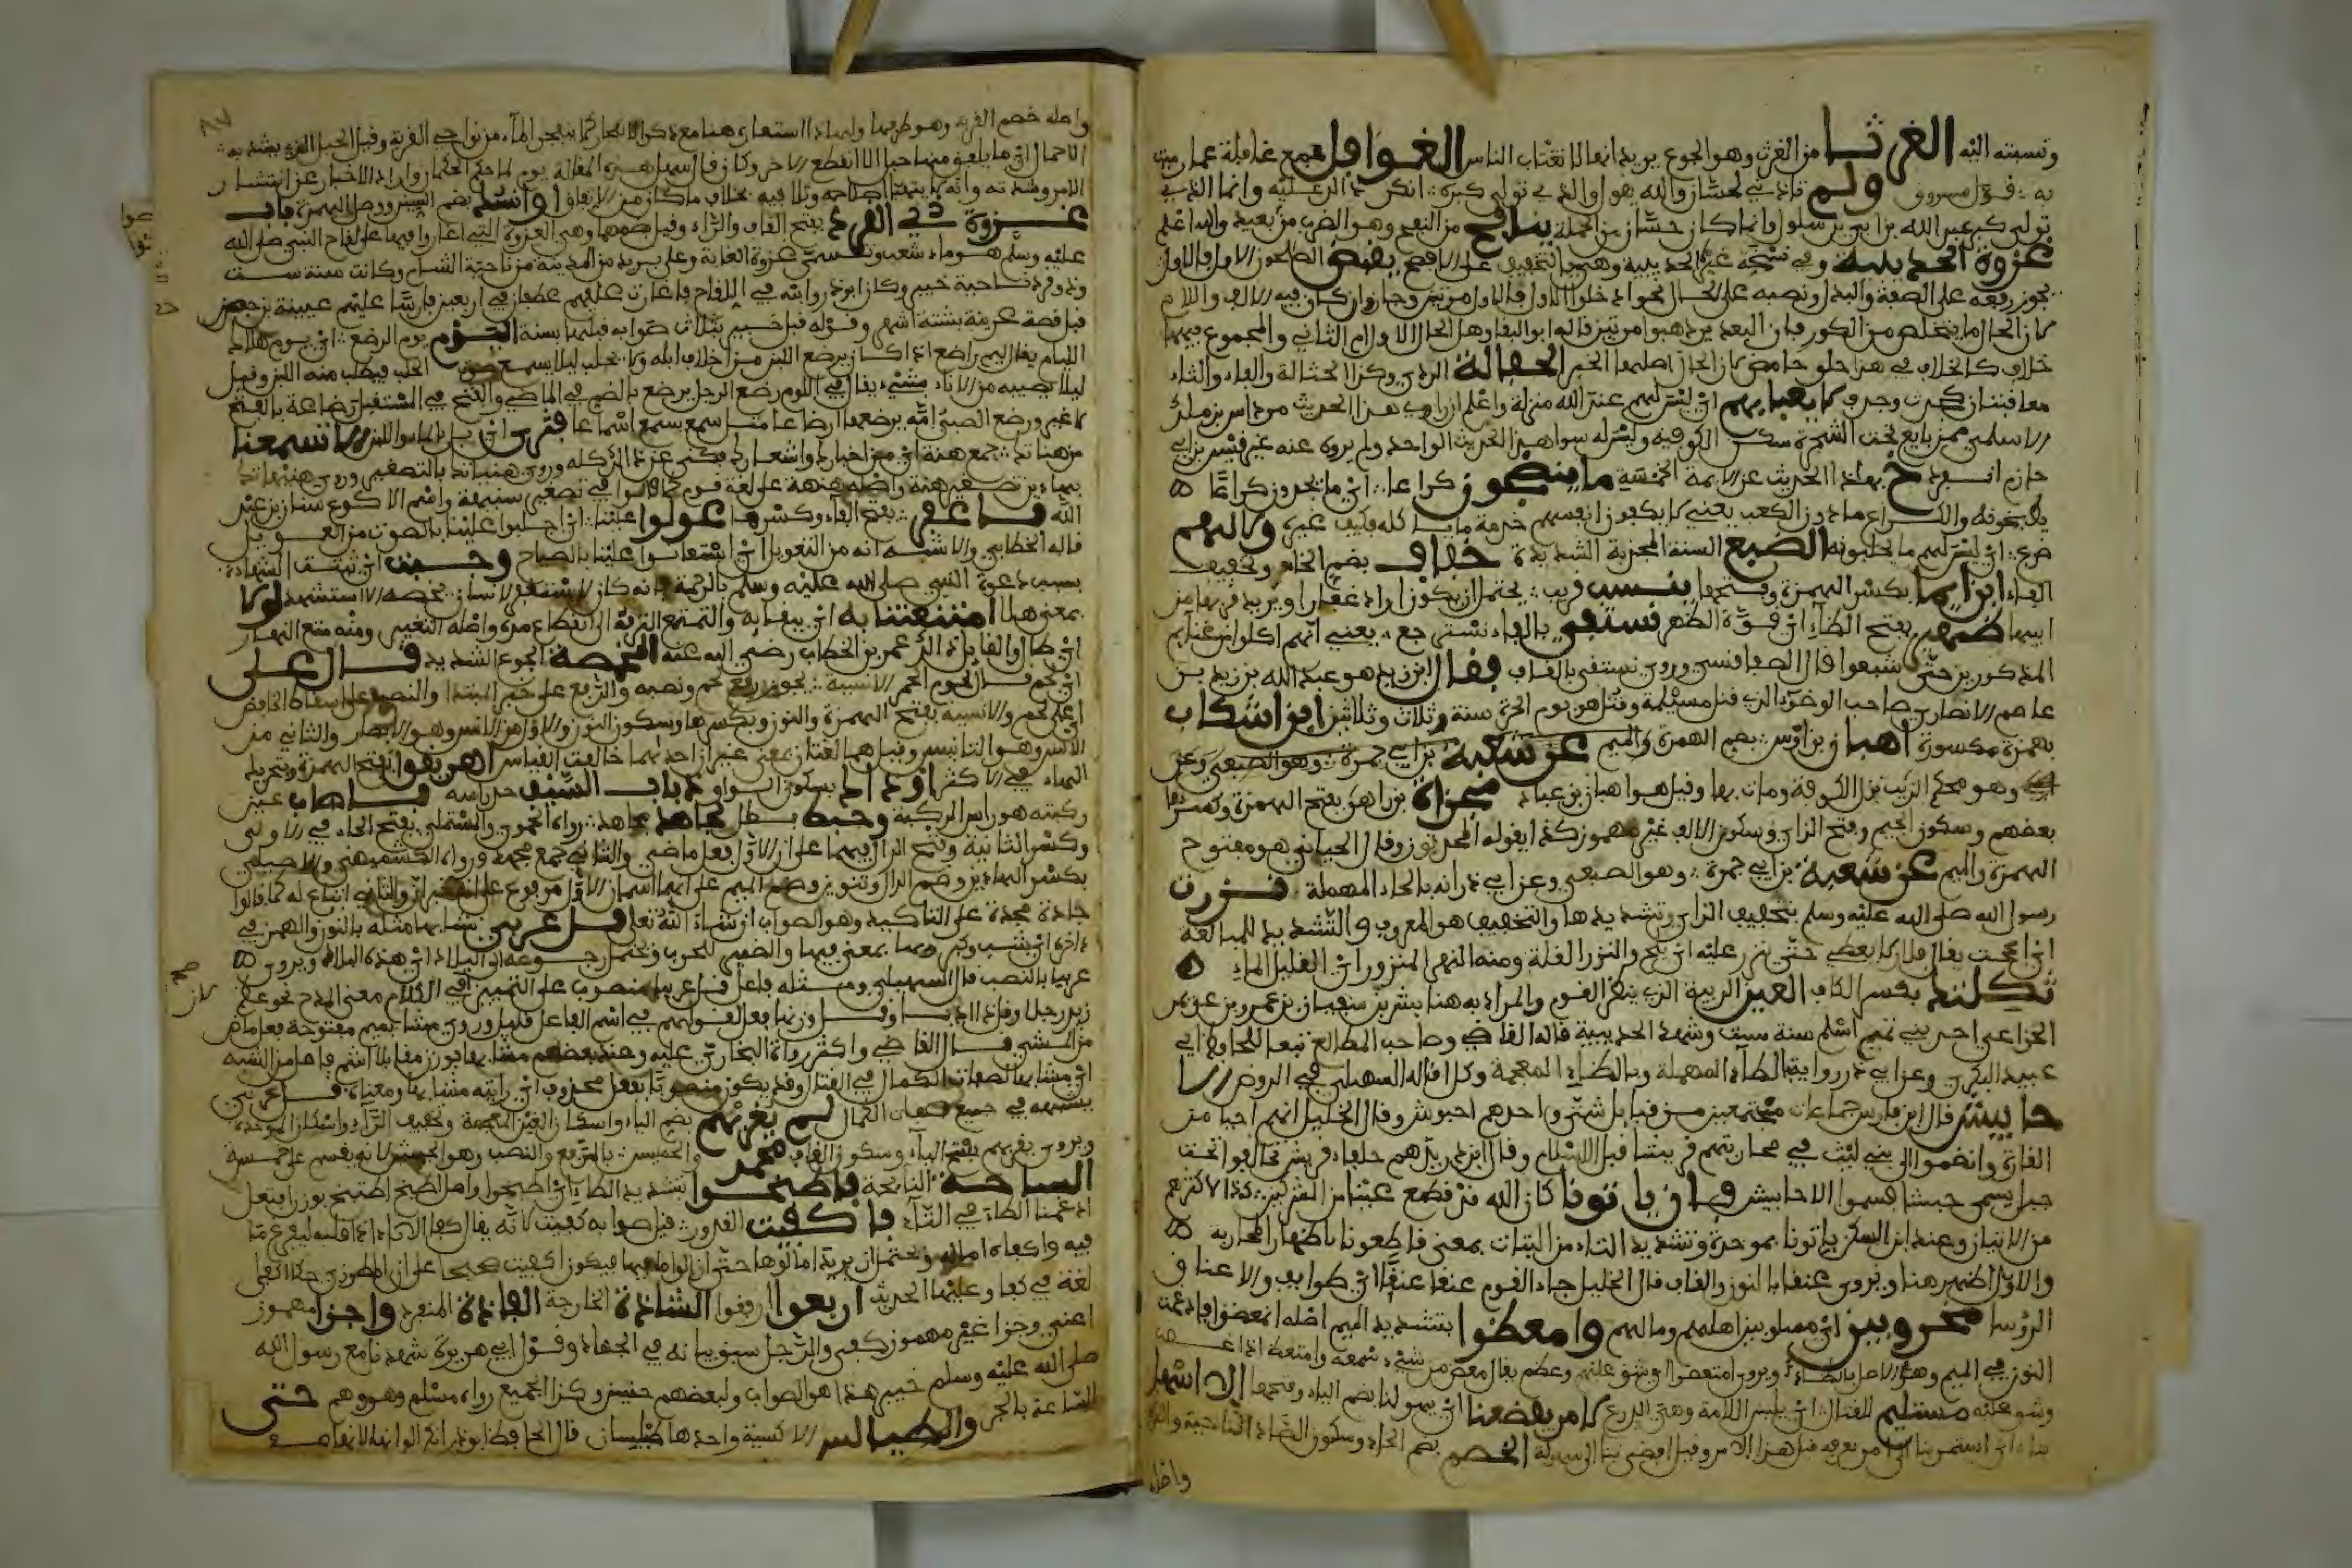 ونسبته اليه الغرثا من الغرث وهو الجوع يريد انها لا تغتاب الناس الغوافل جمع غافلة عما رميت
به قول مسروق ولم تاذني لحسان والله يقول والذي تولى كبره انكر ذلك عليه وانما الذي
تولى كبره عبد الله بن ابي بن سلول وانما كان حسان من الجملة ينافح من النفح وهو الضرب من بعيد والله اعلم
غزوة الحديبية وفي نسخة عمرة الحديبية وهي بالتخفيف على الافصح يقبض الصالحون الاول فالاول
يجوز رفعه على الصفة والبدل ونصبه على الحال نحو ادخلوا الاول فالاول
كان الحال ما يتخلص من المكرر فان البعد يرد هبوا مرتبين قاله ابو البقاء وهل الحال الاول او الثاني والمجموع فيهما
خلاف كالخلاف في هذا حلو حامض لان الحال اصلهما الخبر الحفالة الردي وكذا الحثالة والفاء والثاء
معاقبتان كجدث وجدف لا يعبا بهم اي ليس لهم عند الله منزلة واعلم ان راوي هذا الحديث مرداس بن ملك
الاسلمي ممن بايع تحت الشجرة سكن الكوفة وليس له سوا هذا الحديث الواحد ولم يروه عنه غير قيس بن ابي
حازم انفرد خ بهذا الحديث عن الايمة الخمسة ما ينضجون كراعا اي ما يجدون كراعا
يطبخونه والكراع ما دون الكعب يعني لا يكفون انفسهم خدمة ما ياكله فكيف غيره ولا لهم
ضرع اي ليس لهم ما يحلبونه الضبع السنة المجدبة الشديدة خفاف بضم الخاء وتخفيف
الفاء ابن ايما بكسر الهمزة وفتحها بنسب قريب يحتمل ان يكون اراد غفارا ويريد قربها من
ابيها ظهير بفتح الظاء اي قوة الظهر نستفي بالفاء نسترجع يعني انهم اكلوا من غنايم
المذكورين حتى شبعوا ونروي نستقي بالقاف فقال ابن زيد هو عبد الله بن زيد بن
عاصم الانصاري صاحب الوضوء الذي قتل مسيلمة وقتل هو يوم الحرة سنة وثلاث وثلاثين ابن اشكاب
بهمزة مكسورة اهبان بن اوس بضم الهمزة والميم عن شعبة بن ابي جمرة وهو الضبعي وعن
وهو محكم الذيب نزل الكوفة ومات بها وقيل هو اهبان بن عباد مجزاة بن زاهر بفتح الهمزة وكسرها
بعضهم وسكون الجيم وفتح الزاي وسكون الالف غير مهموز كذا يقوله المحدثون وقال الجياني هو مفتوح
الهمزة والميم عن شعبة بن ابي جمرة وهو الضبعي وعن ابي ذر انه بالحاء المهملة نزرت
رسول الله صلى الله عليه وسلم بتخفيف الزاي وتشديدها والتخفيف هو المعروف والتشديد للمبالغة
اي الححت يقال فلان لا يعطي حتى ينزر عليه اي يلح والنزر القلة ومنه النهر المنزور اي القليل الماء
ثكلتك بكسر الكاف العين الربيئة الذي ينظر القوم والمراد به هنا بشر بن سفيان بن عمرو بن عويمر
الخزاعي احد بني تميم اسلم سنة ست وشهد الحديبية قاله القاضي وصاحب المطالع تبعا للحافظ ابي
عبيد البكري وعن ابي ذر رواية بالطاء المهملة وبالظاء المعجمة وكذا قاله السهيلي في الروض الا
حابيش قال ابن فارس جماعات مجتمعين من قبايل شتى واحدهم احبوش وقال الخليل انهم احيا من
القارة وانضموا الى بني ليث في محاربتهم قريشا قبل الاسلام وقال ابن دريد هم حلفاء قريش تحالفوا تحت
جبل يسمى حبشا فسموا الاحابيش وان ياتونا كان الله قد قطع عينا من المشركين كذا لاكثرهم
من الاتيان وعند ابن السكن باتونا بموحدة وتشديد التاء من البتات بمعنى قاطعونا باظهار المحاربة
والاول اظهر هنا ويروى عنقا بالنون والقاف قال الخليل جاء القوم عنقا عنقا اي طوايف والاعناق
الرؤسا محروبين اي مسلوبين اهلهم ومالهم وامعظوا بتشديد الميم اصله انمعضوا فادغمت
النون في الميم وهو الاصل بالظاء ويروى امتعضوا اي شق عليهم وعظم يقال معض من شيء سمعه وامتعض اذا غضب
وشق عليه مستلئم للقتال اي يلبس اللامة وهي الدرع لامر يفضعنا اي يهولنا بضم الياء وفتحها الا اسهلن
بنا اي استمرن بنا الى امر نعرفه قبل هذا الامر وقيل افضى بنا الى سهولة الخصم بضم الخاء وسكون الضاد الناحية والطرف
واصله
واصله خصم القربة وهو طرفها ولهذا استعاره هنا مع ذكر الانفجار كما ينفجر الماء من نواحي القربة وقيل الحبل الذي يشد به
الاحمال اي ما يلفق منها حبل الا انقطع الاخر وكان قال سهل هذه المقالة يوم لما حكم الحكمان واراد الاخبار عن انتشار
الامر وشدته وانه لا يتهيا اصلاحه وتلافيه بخلاف ما كان من الاتفاق وانسلا بضم السين ووصل الهمزة باب
غزوة ذي القرد بفتح القاف والراء وقيل بضمهما وهي الغزوة التي اغاروا فيها على لقاح النبي صلى الله
عليه وسلم هو ماء شعب وتسمى غزوة الغابة وعلى بريد من المدينة من ناحية الشام وكانت سنة ست
وذو قرد ناحية خيبر وكان ابو ذر وابنه في اللقاح فاغارت عليهم غطفان في اربعين فارسا عليهم عيينة بن حصن
قبل قصة عرينة بستة اشهر وقوله قبل خيبر بثلاث صوابه قبلها بسنة اليوم يوم الرضع اي يوم هلاك
الليام يقال ليم راضع اذا كان يرضع اللبن من اخلاف ابله ولا يحلب ليلا يسمع صوت الحلب فيطلب منه اللبن وقيل
ليلا يصيبه من الاناء شيء يقال في اللوم رضع الرجل يرضع بالضم في الماضي والفتح في المستقبل رضاعة بالفتح
لا غير ورضع الصبي امه يرضعها رضاعا مثل سمع يسمع سماعا الا تسمعنا
من هناتك جمع هنة اي من اخبارك واشعارك فكنى عن ذلك كله وروي هنياتك بالتصغير وروي هنيهاتك
بهاءين تصغير هنة واصله هنهة على لغة قوم كما قالوا في تصغير سنيهة واسم الاكوع سنان بن عبد
الله فاغفر بفتح الفاء وكسرها عولوا علينا اي اجلبوا علينا بالصوت من العويل
قاله الخطابي والاشبه انه من التعويل اي استعانوا علينا بالصياح وجبت اي ثبتت الشهادة
بسبب دعوة النبي صلى الله عليه وسلم بالرحمة فانه كان لا يستغفر لانسان يخصه الا استشهد لولا
بمعنى هلا امتعتنا به اي ببقايه والتمتع الترفه الى انقطاع مدة واصله التعمير ومنه متع النهار
اي طال والقايل ذلك عمر بن الخطاب رضي الله عنه المخمصة الجوع الشديد قال على
اي لحم قال لحوم الحمر الانسية يجوز رفع لحم ونصبه والرفع على خبر المبتدا والنصب على اسقاط الخافض
اي على لحم والانسية بفتح الهمزة والنون وبكسرها وسكون النون والاول من الانس وهو الابصار والثاني من
الانس وهو التانيس وقيل هما لغتان بمعنى غير ان احدهما خالفت القياس اهريقوا بفتح الهمزة وتحريك
الهاء في الاكثر او ذاك بسكون الواو ذباب السيف حد راسه فاصاب عين
ركبته هو راس الركبة وحبط بطل لجاهد مجاهد رواه الحموي والمستملي بفتح الهاء في الاولى
وكسر الثانية وفتح الدال فيهما على ان الاول فعل ماضي والثاني جمع مجهد ورواه الكشميهني والاصيلي
بكسر الهاءين وضم الدال وتنوين وضم الميم على انهما اسمان الاول مرفوع على الخبر والثاني اتباع له كما قالوا
جادة مجدة على التاكيد وهو الصواب ان شاء الله تعلى قل عربي نشا بها مثله بالنون والهمز في
ءاخره اي شب وكبر وبها بمعنى فيها والضمير للحرب ويحتمل رجوعه الى البلاد اي هذه البلاد ويروى
عربيا بالنصب قال السهيلي ومثله فاعل قل عربيا منصوب على التمييز في الكلام معنى المدح نحو عظم
زيد رجلا وقل زيد ادبا
من المشي قال القاضي واكثر رواة البخاري عليه وعند بعضهم مشابها بوزن مقابلا اسم فاعل من الشبه
اي مشابها لصفات الكمال في القتال وقد يكون منصوبا بفعل محذوف اي رايته مشابها ومعناه قل عربي
يشبهه في جميع صفات الكمال لم يغربهم بضم الياء واسكان الغين المعجمة وتخفيف الراء واسكان الموحدة
ويروى يقربهم بفتح الياء وسكون القاف محمد والخميس بالرفع والنصب وهو الجيش لانه يقسم على خمسة
الساحة الناحية فاطبخوا بتشديد الطاء اي اطبخوا واصل اطبخ اطتبخ بوزن افتعل
ادغمنا الطاء في التاء فاكفيت القدور قيل صوابه كفيت لانه يقال كفا الاناء اذا قلبه ليفرغ ما
فيه واكفاه اماله ويحتمل ان يريد امالوها حتى ازالوا ما فيها فيكون اكفيت صحيحا
لغة في كفا وعليها الحديث اربعوا ارفقوا الشاذة الخارجة الفاذة المنفرد واجزا مهموز
اغنى وجزا غير مهموز كفى والرجل سبق بيانه في الجهاد وقول ابي هريرة شهدنا مع رسول الله
صلى الله عليه وسلم خيبر هذا هو الصواب ولبعضهم حنين وكذا الجميع رواه مسلم وهو وهم حتى
الساعة بالجر والطيالس الاكسية واحدها طيلسان قال الحافظ ابو ذر